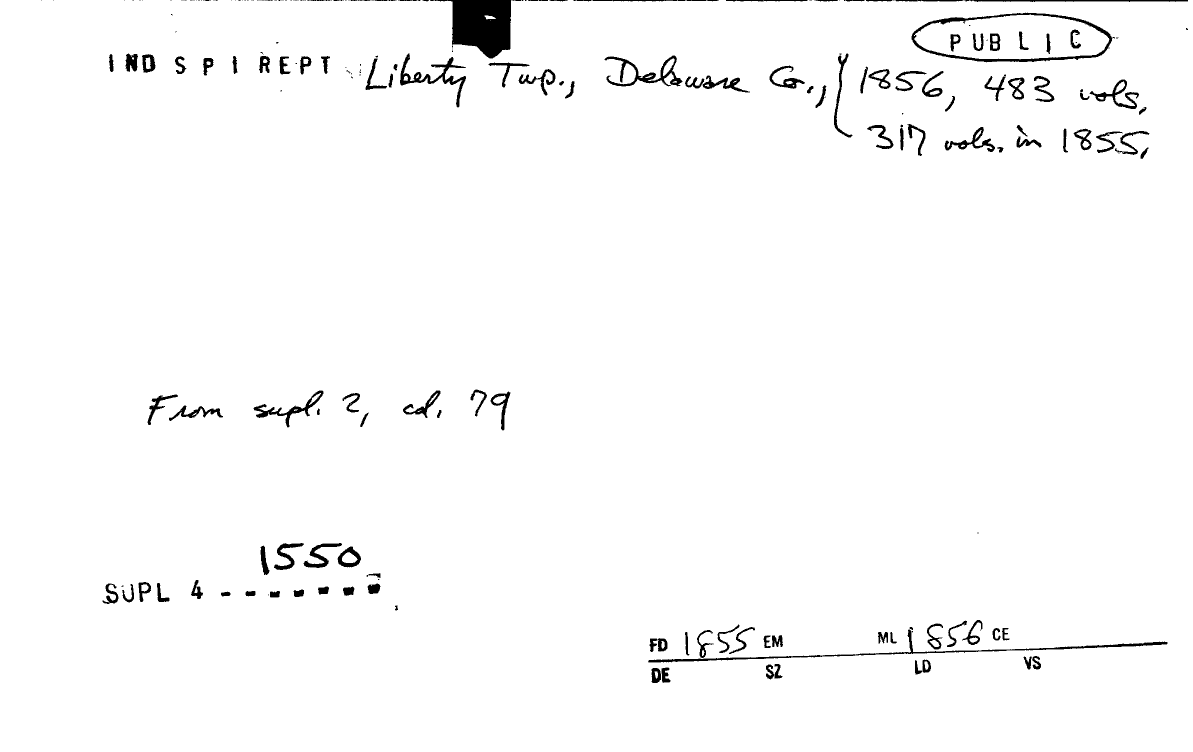 PUBLIC
INDSPIREPT Liberty Twp., Delaware Co., { 1856, 483 vols.
317 vols. in 1855.
From supl. 2, cd. 79
1550
SUPL 4 - - - - - - -
FD 1855 EM ML 1856 CE
DE SZ LD VS